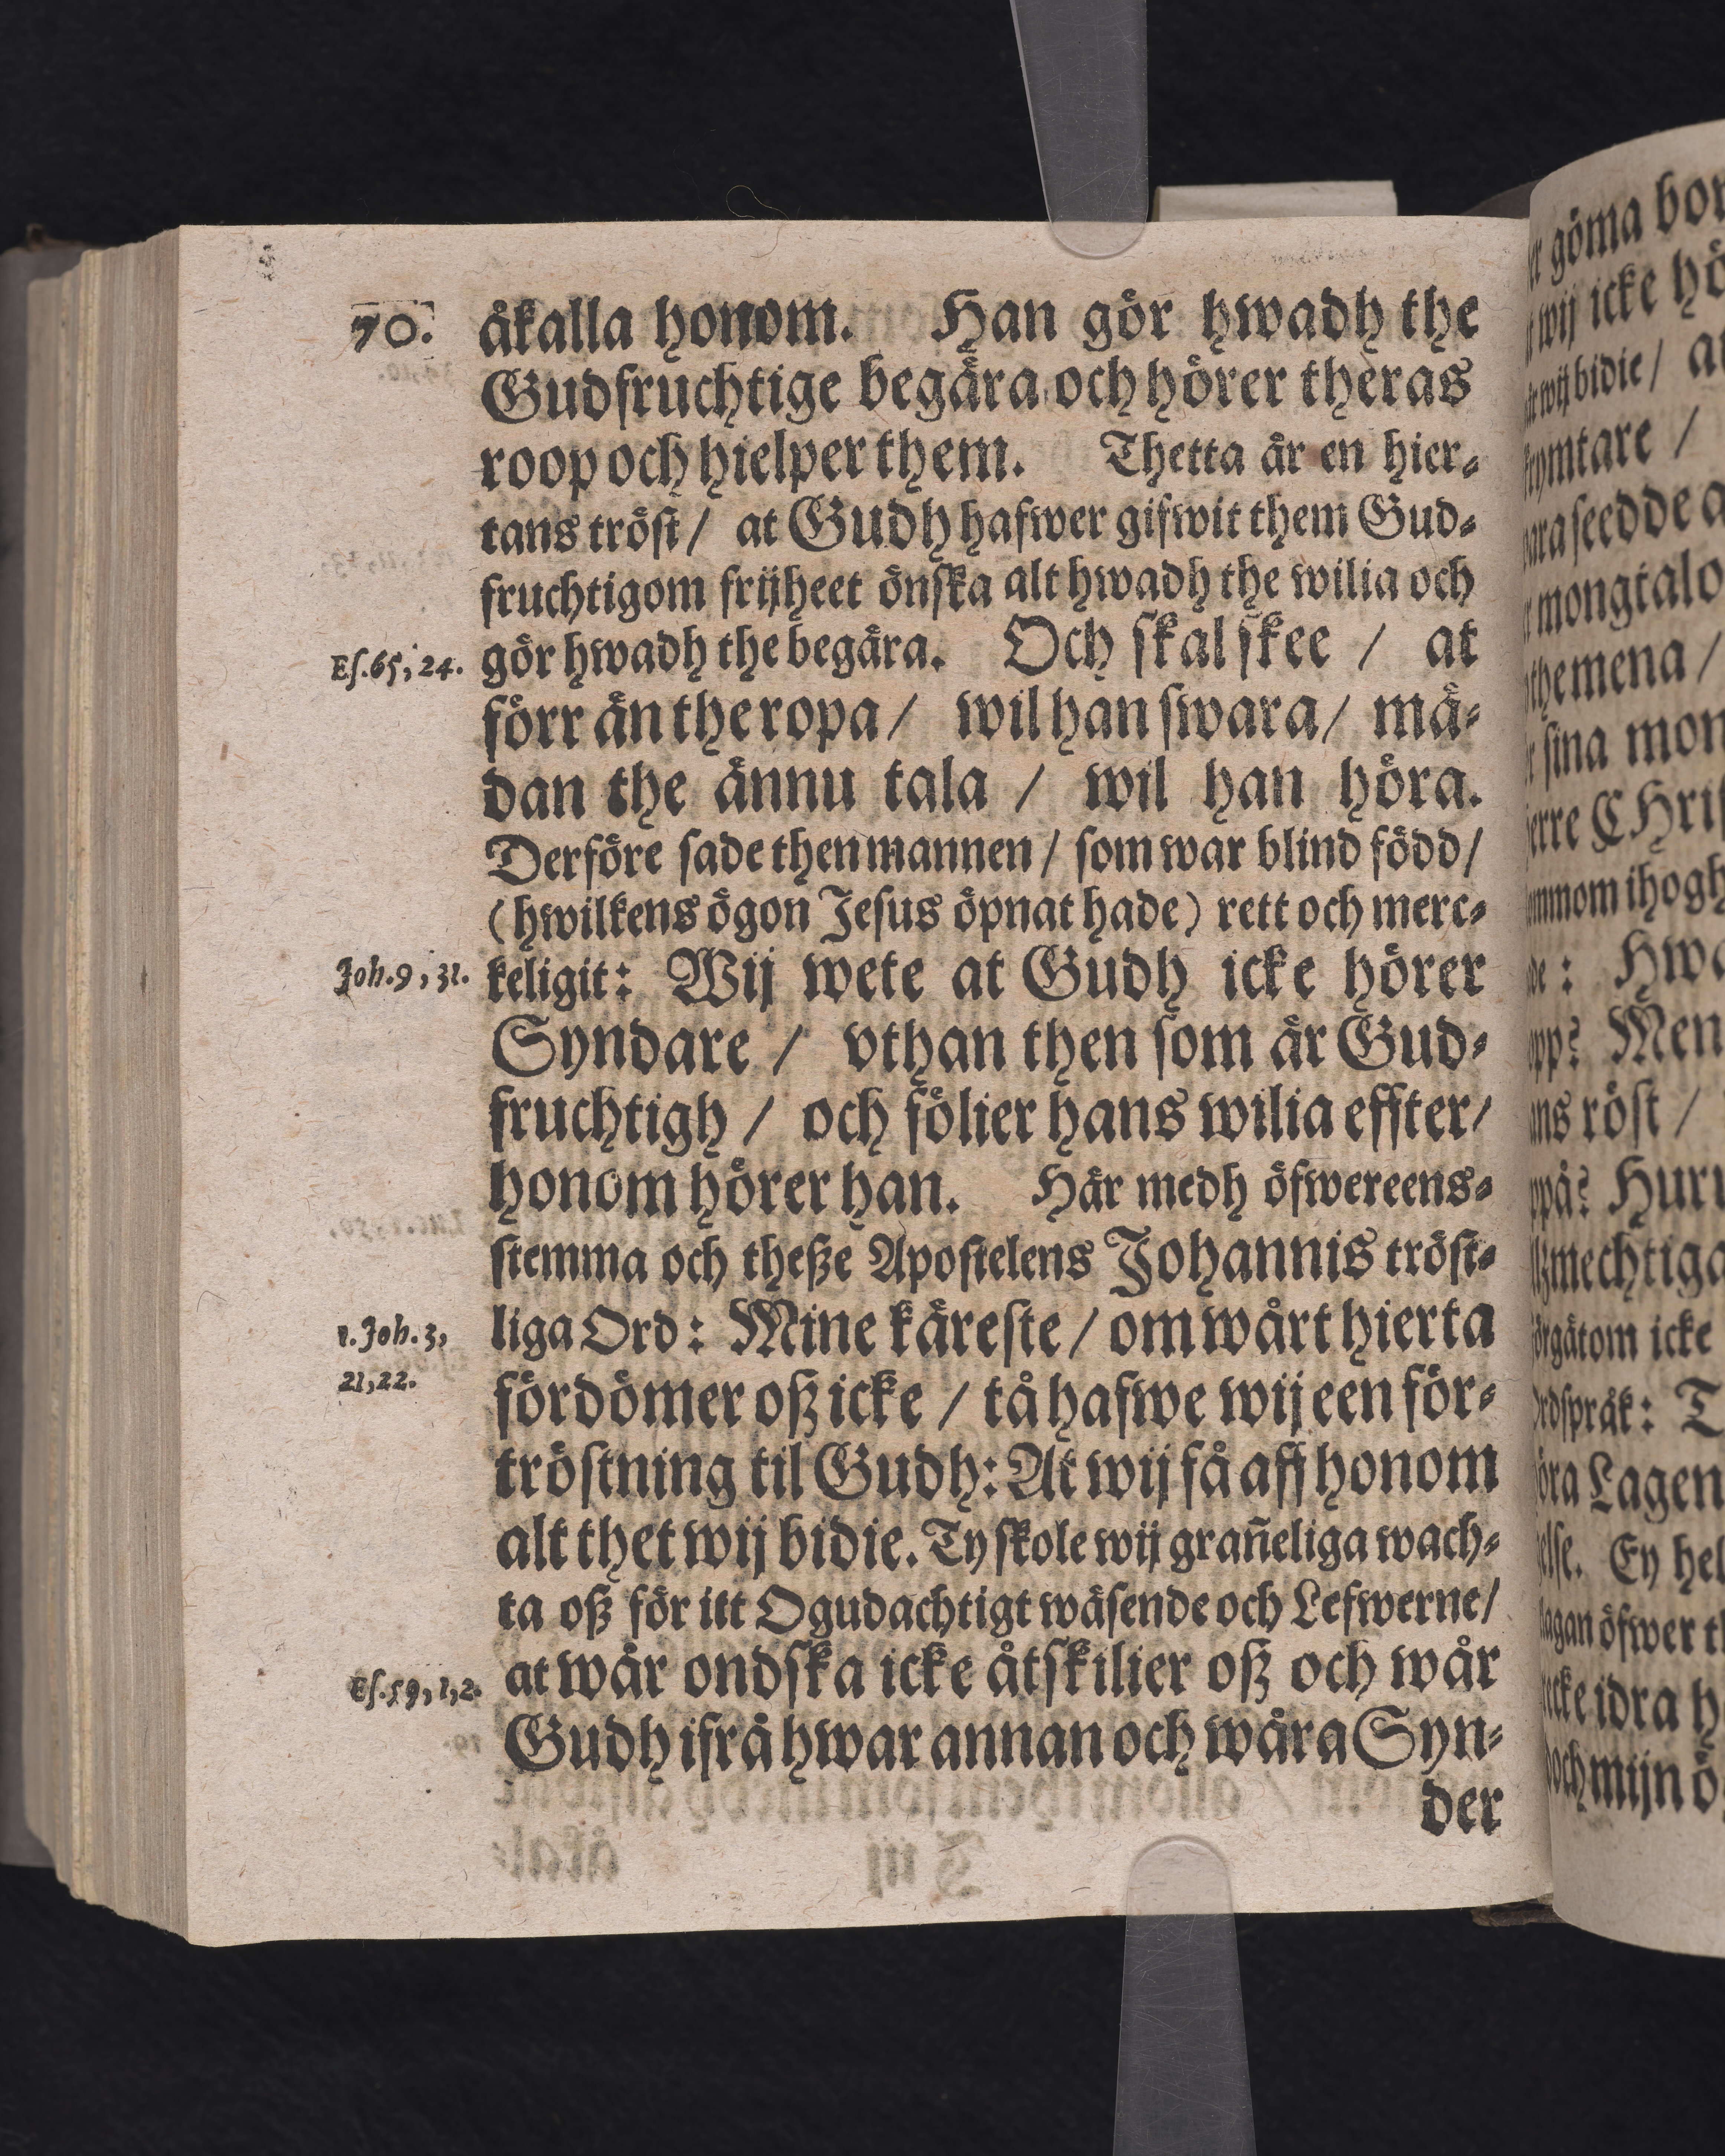 70.
åkalla honom. Han gör hwadh the
Gudfruchtige begära och hörer theras
roop och hielper them. Thetta är en hier⸗
tans tröst / at Gudh hafwer gifwit them Gud⸗
fruchtigom frijheet önska alt hwadh the wilia och
Es. 65, 24.
gör hwadh the begära. Och skal skee / at
förr än the ropa / wil han swara / mä⸗
dan the ännu tala / wil han höra.
Derföre sade then mannen / som war blind född /
(hwilkens ögon Jesus öpnat hade) rett och merc⸗
Joh. 9, 31.
keligit: Wij wete at Gudh icke hörer
Syndare / vthan then som är Gud⸗
fruchtigh / och fölier hans wilia effter /
honom hörer han. Här medh öfwereens⸗
stemma och theße Apostelens Johannis tröst⸗
1. Joh. 3,
21, 22.
liga Ord: Mine käreste / om wårt hierta
fördömer oß icke / tå hafwe wij een för⸗
tröstning til Gudh: At wij få aff honom
alt thet wij bidie. Ty skole wij grañeliga wach⸗
ta oß för itt Ogudachtigt wäsende och Lefwerne /
Es. 59, 1, 2.
at wår ondska icke åtskilier oß och wår
Gudh ifrå hwar annan och wåra Syn⸗
der
göma
wij icke
wij bidie /
mongtalo
the mena /
sina
röst /
mechtiga
icke
Lagen
Ey
öfwer
idra
och mijn